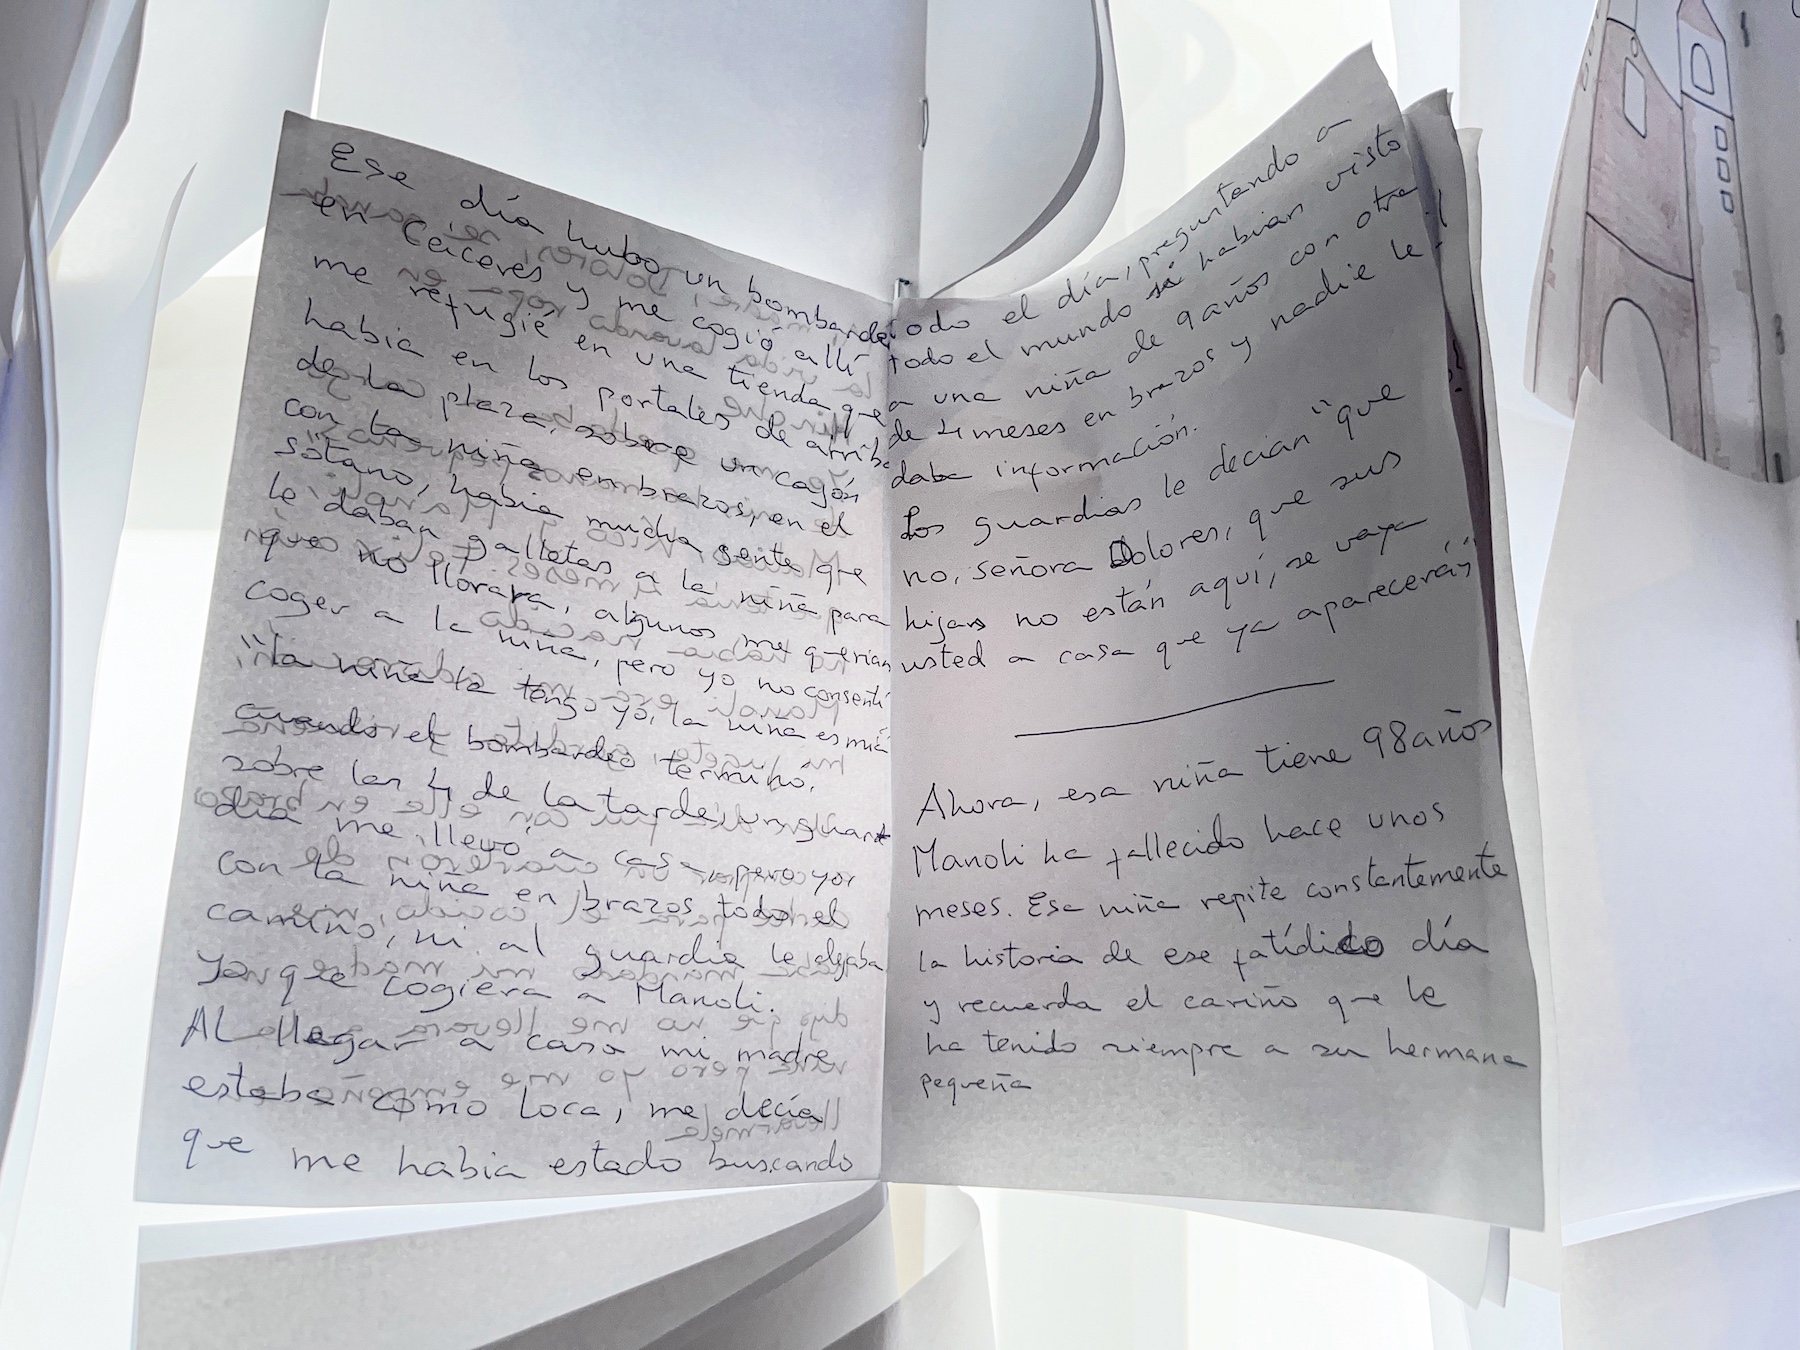 Ese día hubo un bombardeo
en Cáceres y me cogió allí
me refugié en una tienda que
habia en los portales de arriba
de la plaza, sobre un cagón
con la niña en brazos, en el
sótano, habia mucha gente que
le daban galletas a la niña para
que no llorara, algunos me querian
coger a la niña, pero yo no consentí
"la niña la tengo yo, la niña es mía"
cuando el bombardeo termino,
sobre las 4 de la tarde, un guar
dia me llevó a casa, pero yo
con la niña en brazos todo el
camino, ni al guardia le dejaba
yo que cogiera a Manoli.
Al llegar a casa mi madre
estaba como loca, me decía
que me habia estado buscando
todo el día, preguntando a
todo el mundo si habian visto
a una niña de 9 años con otra
de 4 meses en brazos y nadie le
daba información.
Los guardias le decian "que
no, señora Dolores, que sus
hijas no están aquí, se vaya
usted a casa que ya aparecerán"
Ahora, esa niña tiene 98 años
Manoli ha fallecido hace unos
meses. Esa niña repite constantemente
la historia de ese fatídico día
y recuerda el cariño que le
ha tenido siempre a su hermana
pequeña